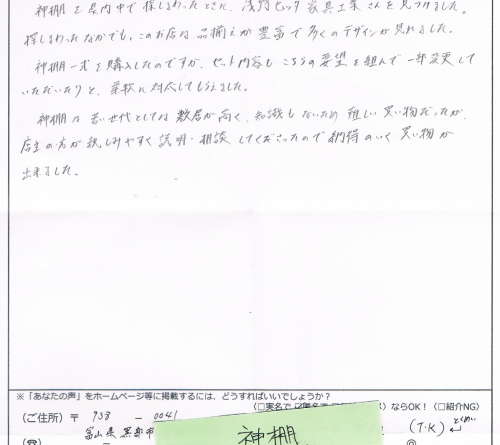 神棚を県内中で探しまわったときに、浅野ヒッタ家具工業さんを見つけました。
探しまわったなかでも、このお店は品揃えが豊富で多くのデザインが見れました。
神棚一式を購入したのですが、セット内容もこちらの要望を組んで一部変更して
いただいたりと、柔軟に対応してもらえました。
神棚は若い世代としては敷居が高く、知識もないため難しい買い物だったが、
店主の方が親しみやすく説明・相談してくださったので納得のいく買い物が
出来ました。
※「あなたの声」をホームページ等に掲載するには、どうすればいいでしょうか？
(□実名で ならOK！ (□紹介NG)
(ご住所) 〒 938 - 0041 (T・K) とくめい
富山県 黒部市
神棚